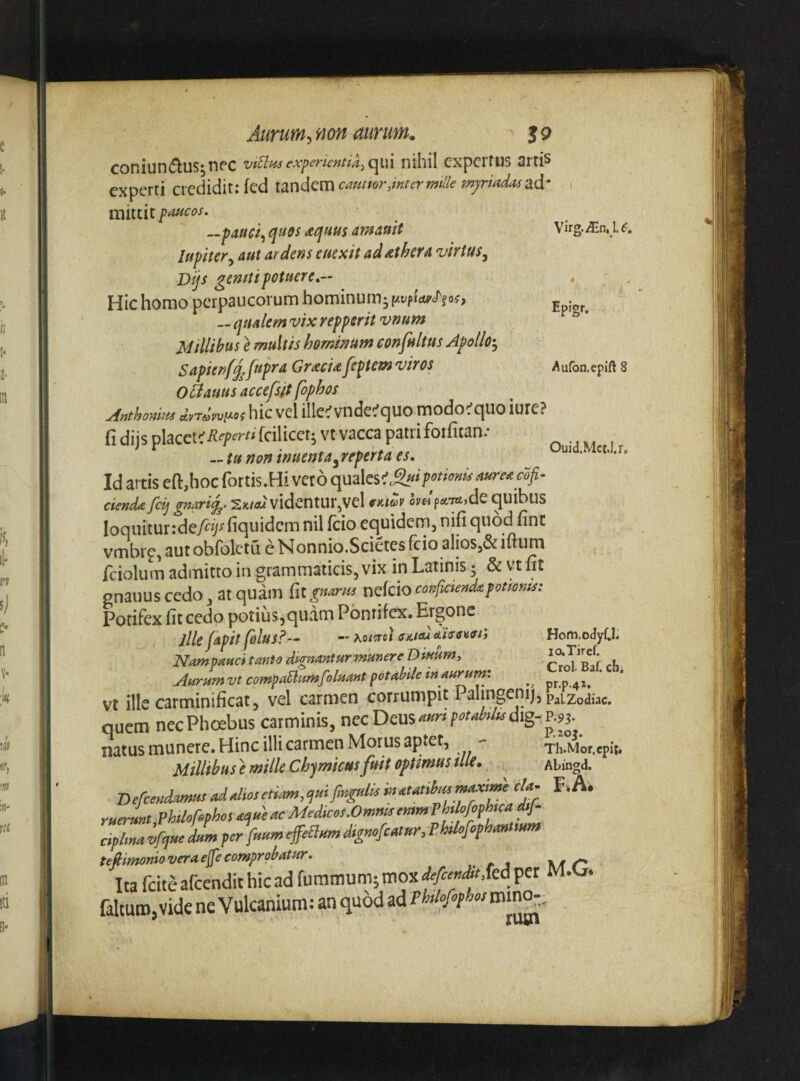 Aurum, non aurum. 59
coniunctus; nec victus experientiâ, qui nihil expertus artis
experti credidit: sed tandem cautior, inter mille myriadas ad-
mittit paucos.
—pauci, quos æquus amauit Virg. Æn. l. 6.
Iupiter, aut ardens euexit ad æthera virtus,
Dijs geniti potuere.--
Hic homo perpaucorum hominum; μυρίανδρος,
—qualem vix repperit vnum Epigr.
Millibus è multis hominum consultus Apollo;
Sapiensq; supra Græciæ septem viros Auson. epist 8
Octauus accessit sophos
Anthonius ἀντώνυμος hic vel ille? vnde? quo modo? quo iure?
si dijs placet? Reperti scilicet; vt vacca patri forsitan:
— tu non inuenta, reperta es. Ouid. Met. l. 1.
Id artis est, hoc fortis. Hi verò quales? Qui potionis aureæ cōfi-
ciendæ scij gnariq́. Σκιαὶ videntur, vel σκιῶν ὀνείρατα, de quibus
loquitur: de scijs siquidem nil scio equidem, nisi quòd sint
vmbræ, aut obsoletū è Nonnio. Scietes scio alios, & istum
sciolum admitto in grammaticis, vix in Latinis; & vt sit
gnauus cedo, at quàm sit gnarus nescio conficiendæ potionis:
Potifex sit cedo potiùs, quàm Pontifex. Ergone
Ille sapit solus?-- -- λοιποὶ σκιαὶ ἀΐσσουσι; Hom. odyss. l.
Nam pauci tanto dignantur munere Diuûm, 10. Tires.
Aurum vt compactum soluant potabile in aurum: Crol. Bas. ch.
pr. p. 42.
vt ille carminificat, vel carmen corrumpit Palingenij, Pal. Zodiac.
quem nec Phœbus carminis, nec Deus auri potabilis dig- p. 93.
p. 203.
natus munere. Hinc illi carmen Morus aptet, Th. Mor. epit.
Millibus è mille Chymicus fuit optimus ille. Abingd.
Descendamus ad alios etiam, qui singulis in ætatibus maximè cla- F. A.
ruerunt, Philosophos æquè ac Medicos. Omnis enim Philosophica dis-
ciplina vsque dum per suum effectum dignoscatur, Philosophantium
testimonio vera esse comprobatur.
Ita scitè ascendit hic ad summum; mox descendit, sed per M. G.
saltum, vide ne Vulcanium: an quòd ad Philosophos mino-
rum